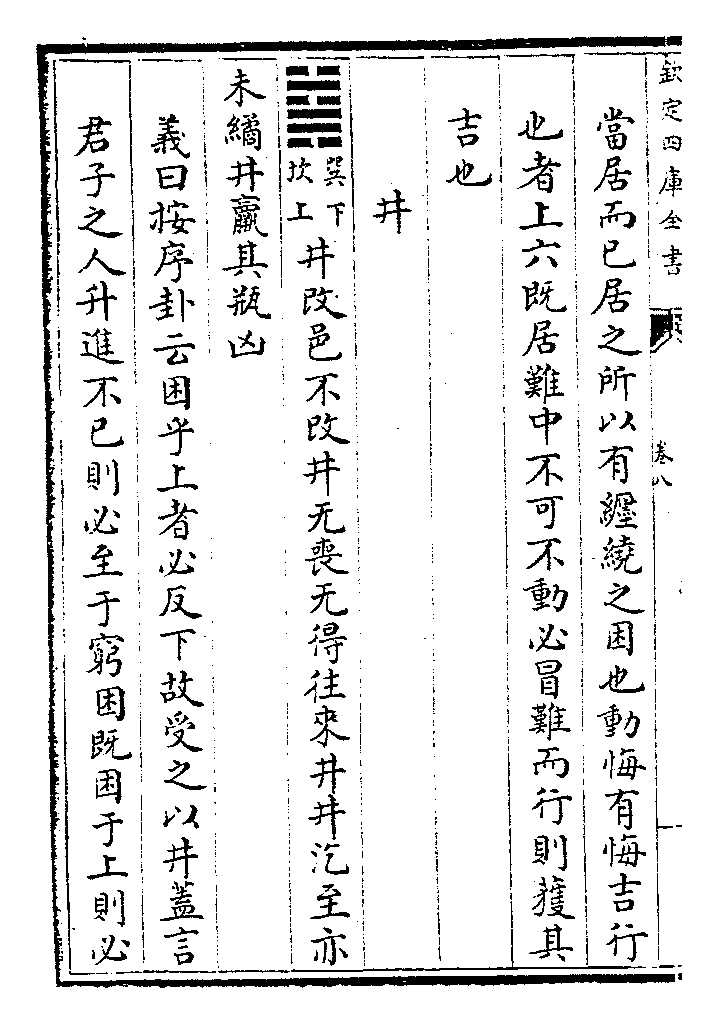 欽定四庫全書
卷八
當居而已居之所以有纒繞之困也動悔有悔吉行
也者上六既居難中不可不動必冒難而行則獲其
吉也
井
䷯巽下坎上井改邑不改井无喪无得往來井井汔至亦
未繘井羸其瓶凶
義曰按序卦云困乎上者必反下故受之以井蓋言
君子之人升進不已則必至于窮困既困于上則必